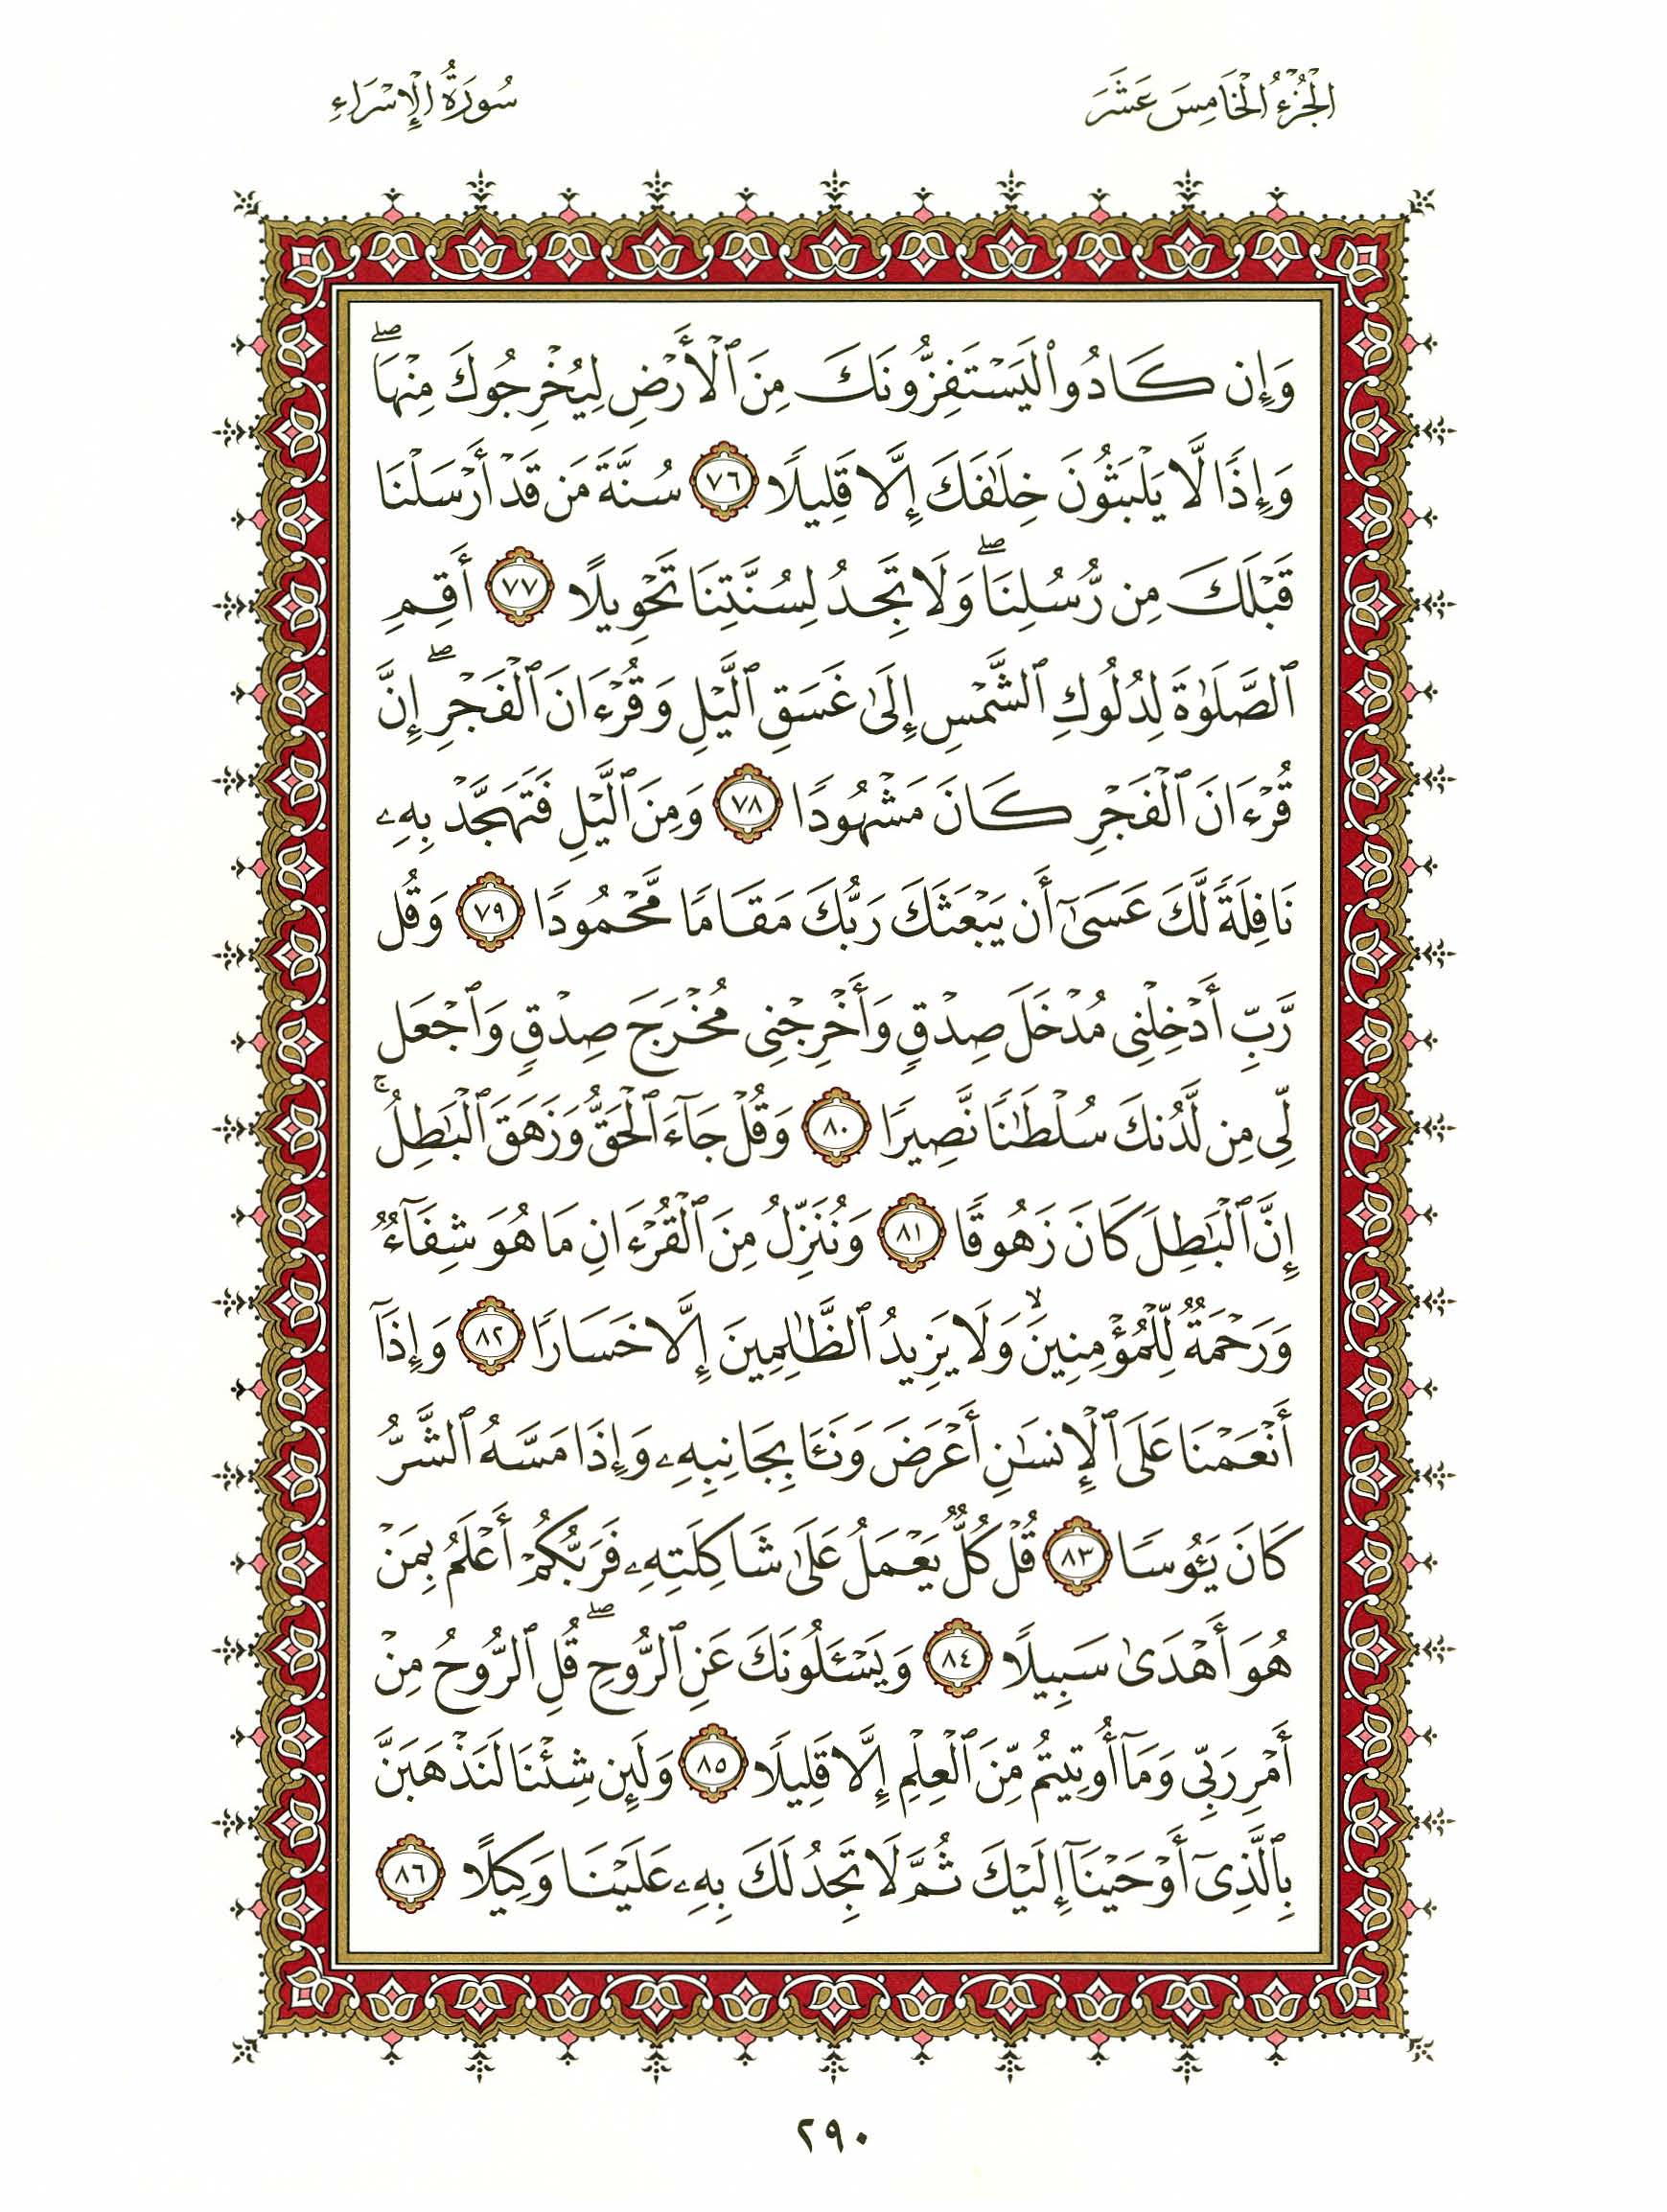 الْجُزْءُ الْخَامِسَ عَشَرَ
سُورَةُ الْإِسْرَاءِ
وَإِن كَادُوا۟ لَيَسْتَفِزُّونَكَ مِنَ ٱلْأَرْضِ لِيُخْرِجُوكَ مِنْهَا ۖ
وَإِذًا لَّا يَلْبَثُونَ خِلَـٰفَكَ إِلَّا قَلِيلًا ٧٦ سُنَّةَ مَن قَدْ أَرْسَلْنَا
قَبْلَكَ مِن رُّسُلِنَا ۖ وَلَا تَجِدُ لِسُنَّتِنَا تَحْوِيلًا ٧٧ أَقِمِ
ٱلصَّلَوٰةَ لِدُلُوكِ ٱلشَّمْسِ إِلَىٰ غَسَقِ ٱلَّيْلِ وَقُرْءَانَ ٱلْفَجْرِ ۖ إِنَّ
قُرْءَانَ ٱلْفَجْرِ كَانَ مَشْهُودًا ٧٨ وَمِنَ ٱلَّيْلِ فَتَهَجَّدْ بِهِۦ
نَافِلَةً لَّكَ عَسَىٰٓ أَن يَبْعَثَكَ رَبُّكَ مَقَامًا مَّحْمُودًا ٧٩ وَقُل
رَّبِّ أَدْخِلْنِى مُدْخَلَ صِدْقٍ وَأَخْرِجْنِى مُخْرَجَ صِدْقٍ وَٱجْعَل
لِّى مِن لَّدُنكَ سُلْطَـٰنًا نَّصِيرًا ٨٠ وَقُلْ جَآءَ ٱلْحَقُّ وَزَهَقَ ٱلْبَـٰطِلُ ۚ
إِنَّ ٱلْبَـٰطِلَ كَانَ زَهُوقًا ٨١ وَنُنَزِّلُ مِنَ ٱلْقُرْءَانِ مَا هُوَ شِفَآءٌ
وَرَحْمَةٌ لِّلْمُؤْمِنِينَ ۙ وَلَا يَزِيدُ ٱلظَّـٰلِمِينَ إِلَّا خَسَارًا ٨٢ وَإِذَآ
أَنْعَمْنَا عَلَى ٱلْإِنسَـٰنِ أَعْرَضَ وَنَـَٔا بِجَانِبِهِۦ وَإِذَا مَسَّهُ ٱلشَّرُّ
كَانَ يَـُٔوسًا ٨٣ قُلْ كُلٌّ يَعْمَلُ عَلَىٰ شَاكِلَتِهِۦ فَرَبُّكُمْ أَعْلَمُ بِمَنْ
هُوَ أَهْدَىٰ سَبِيلًا ٨٤ وَيَسْـَٔلُونَكَ عَنِ ٱلرُّوحِ ۖ قُلِ ٱلرُّوحُ مِنْ
أَمْرِ رَبِّى وَمَآ أُوتِيتُم مِّنَ ٱلْعِلْمِ إِلَّا قَلِيلًا ٨٥ وَلَئِن شِئْنَا لَنَذْهَبَنَّ
بِٱلَّذِىٓ أَوْحَيْنَآ إِلَيْكَ ثُمَّ لَا تَجِدُ لَكَ بِهِۦ عَلَيْنَا وَكِيلًا ٨٦
٢٩٠